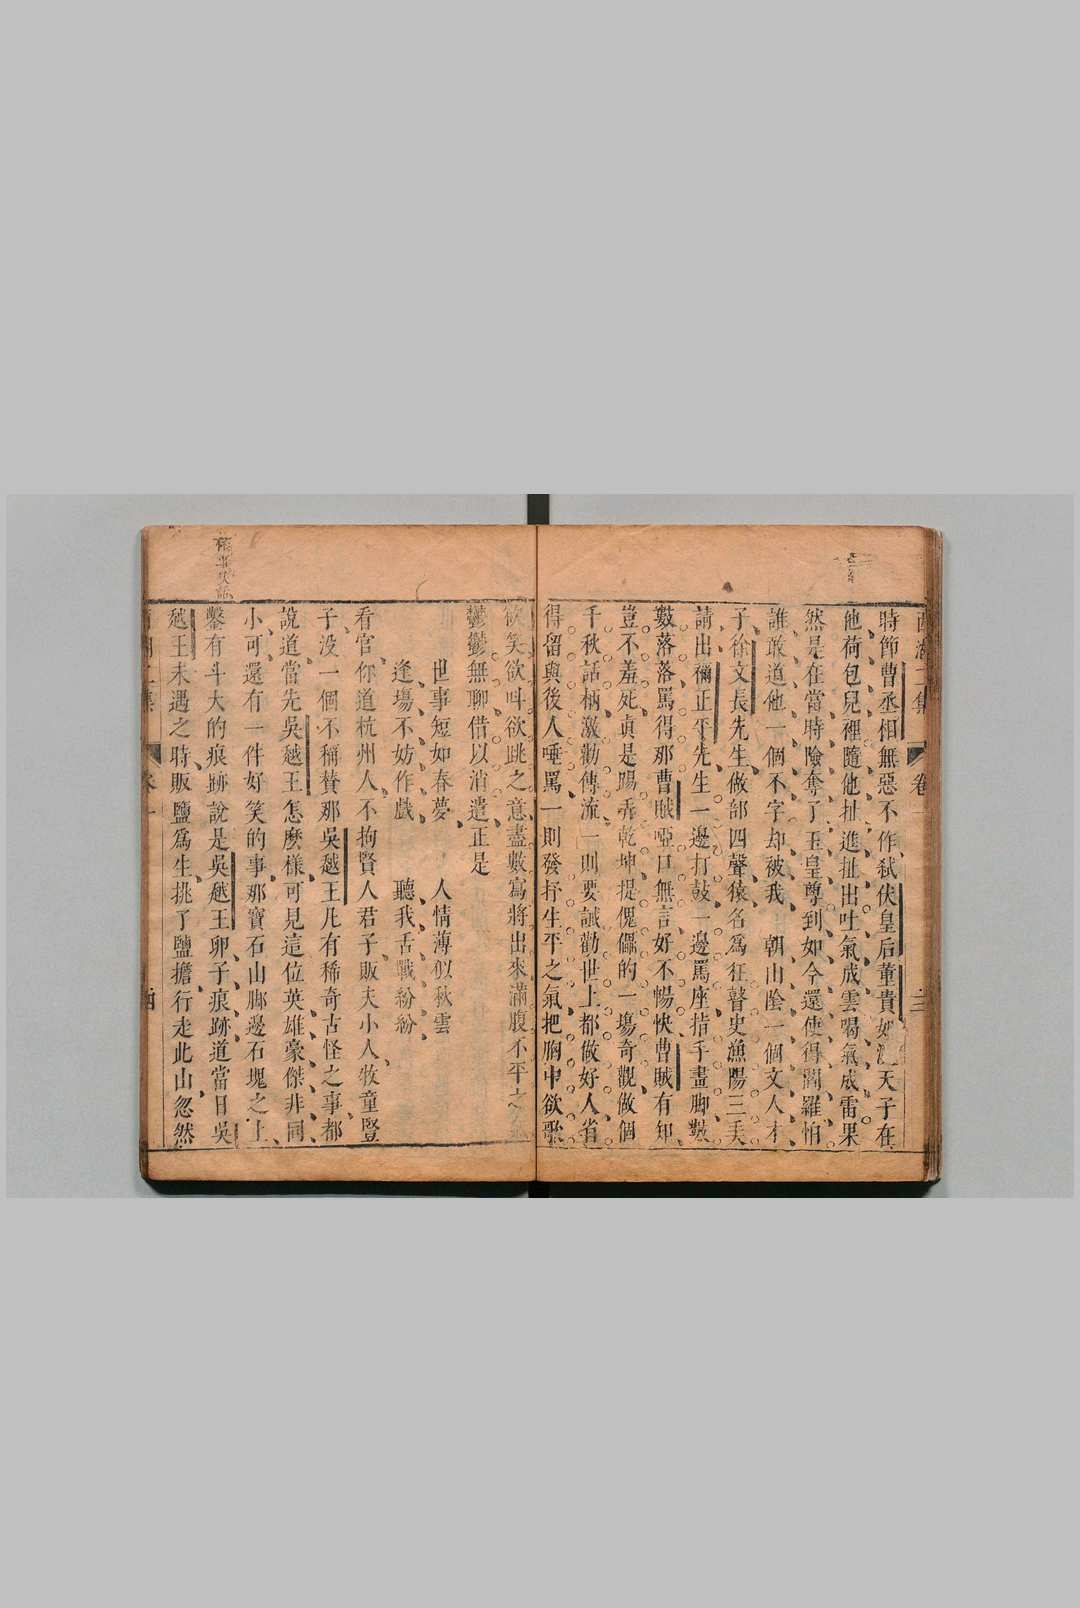 時節曹丞相無惡不作弒伏皇后董貴妃漢天子在
他荷包兒裡隨他扯進扯出吐氣成雲喝氣成雷果
然是在當時險奪了玉皇尊到如今還使得閻羅怕
誰敢道他一個不字却被我朝山陰一個文人才
子徐文長先生做部四聲猿名爲狂鼓史漁陽三弄
請出禰正平先生一邊打鼓一邊罵座指手畫脚數
數落落罵得那曹賊啞口無言好不暢快曹賊有知
豈不羞死真是賜弄乾坤捉傀儡的一塲奇觀做個
千秋話柄激勸傳流一則要誡勸世上都做好人省
得留與後人唾罵一則發抒生平之氣把胸中欲歌
欲笑欲叫欲跳之意盡數寫將出來滿腹不平之氣
鬱鬱無聊借以消遣正是
世事短如春夢 人情薄似秋雲
逢塲不妨作戲 聽我舌戰紛紛
看官你道杭州人不拘賢人君子販夫小人牧童豎
子没一個不稱贊那吳越王凡有稀奇古怪之事都
說道當先吳越王怎麽樣可見這位英雄豪傑非同
小可還有一件好笑的事那寶石山脚邊石塊之上
鑿有斗大的痕跡說是吳越王卵子痕跡道當日吳
越王未遇之時販鹽爲生挑了鹽擔行走此山忽然